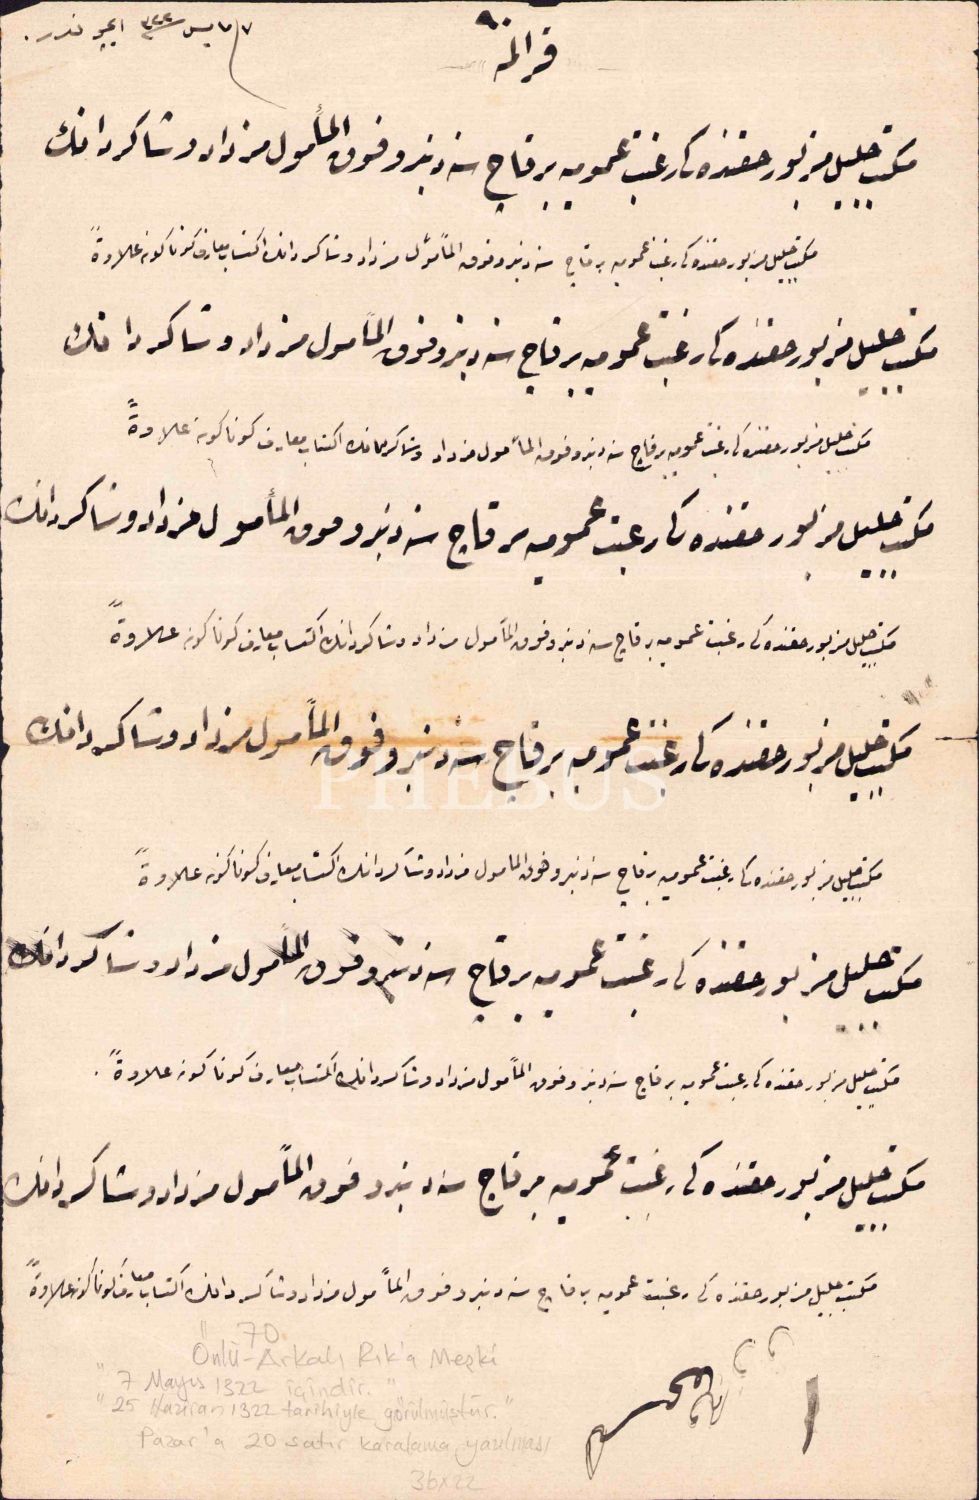 ٩٠
٧ مايس ٣٢٢ ايچوندر.
قرالمه
مكتب جليل مزبور حقنده كى رغبت عموميه بر قاچ سنه دنبرو فوق المأمول مزداد و شاكردانك
مكتب جليل مزبور حقنده كى رغبت عموميه بر قاچ سنه دنبرو فوق المأمول مزداد و شاكردانك اكتساب معارف كوناكونه علاوةً
مكتب جليل مزبور حقنده كى رغبت عموميه بر قاچ سنه دنبرو فوق المأمول مزداد و شاكردانك
مكتب جليل مزبور حقنده كى رغبت عموميه بر قاچ سنه دنبرو فوق المأمول مزداد و شاكردانك اكتساب معارف كوناكونه علاوةً
مكتب جليل مزبور حقنده كى رغبت عموميه بر قاچ سنه دنبرو فوق المأمول مزداد و شاكردانك
مكتب جليل مزبور حقنده كى رغبت عموميه بر قاچ سنه دنبرو فوق المأمول مزداد و شاكردانك اكتساب معارف كوناكونه علاوةً
مكتب جليل مزبور حقنده كى رغبت عموميه بر قاچ سنه دنبرو فوق المأمول مزداد و شاكردانك
PHEBUS
مكتب جليل مزبور حقنده كى رغبت عموميه بر قاچ سنه دنبرو فوق المأمول مزداد و شاكردانك اكتساب معارف كوناكونه علاوةً
مكتب جليل مزبور حقنده كى رغبت عموميه بر قاچ سنه دنبرو فوق المأمول مزداد و شاكردانك
مكتب جليل مزبور حقنده كى رغبت عموميه بر قاچ سنه دنبرو فوق المأمول مزداد و شاكردانك اكتساب معارف كوناكونه علاوةً.
مكتب جليل مزبور حقنده كى رغبت عموميه بر قاچ سنه دنبرو فوق المأمول مزداد و شاكردانك
مكتب جليل مزبور حقنده كى رغبت عموميه بر قاچ سنه دنبرو فوق المأمول مزداد و شاكردانك اكتساب معارف كوناكونه علاوةً
70
Önlü-Arkalı Rık'a Meşki
"7 Mayıs 1322 içindir."
"25 Haziran 1322 tarihiyle görülmüştür."
Pazar'a 20 satır karalama yazılması
36x22